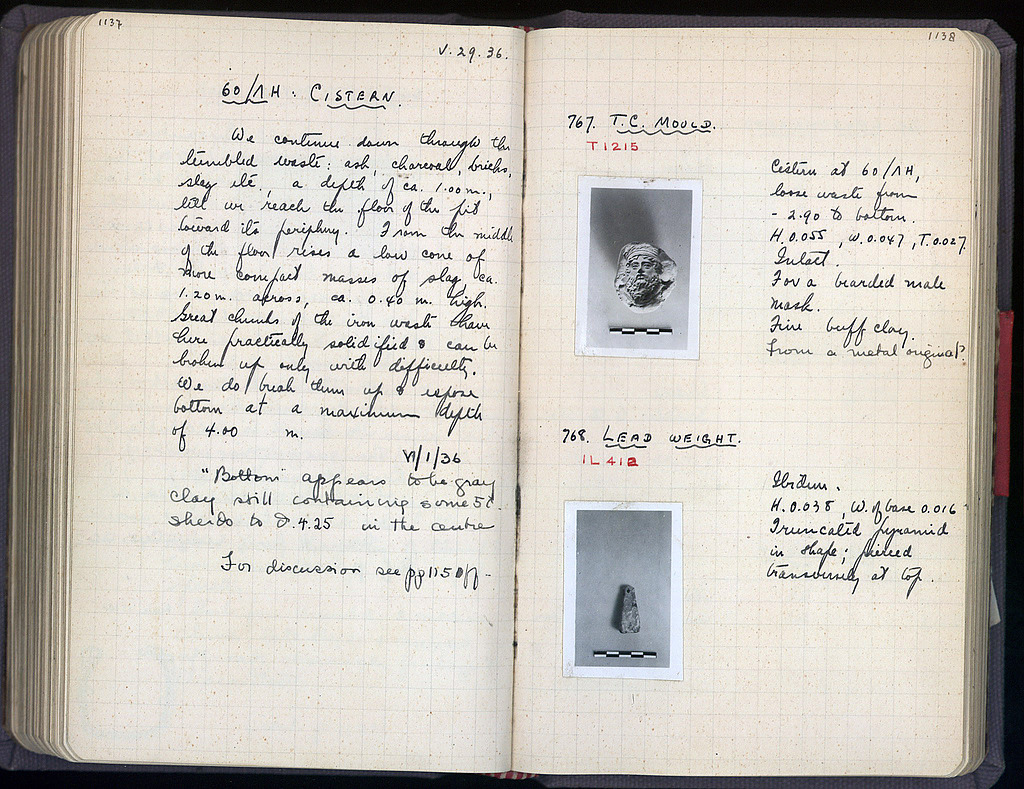 1137
V. 29. 36.
60/ΛH. CISTERN.
We continue down through the
tumbled waste: ash, charcoal, bricks,
slag etc., a depth of ca. 1.00 m.,
till we reach the floor of the pit
toward its periphery. From the middle
of the floor rises a low cone of
more compact masses of slag ca.
1.20 m. across, ca. 0.40 m. high.
Great chunks of the iron waste have
here practically solidified & can be
broken up only with difficulty.
We do break them up & expose
bottom at a maximum depth
of 4.00 m.
VI/1/36
"Bottom" appears to be gray
clay still containing some
sherds to 4.25 in the centre
For discussion see pg 1150ff-
1138
767. T.C. MOULD.
T 1215
Cistern at 60/ΛH,
loose waste from
- 2.90 to bottom.
H. 0.055, W. 0.047, T. 0.027
Intact.
For a bearded male
mask.
Fine buff clay.
From a metal original?
768. LEAD WEIGHT.
IL 412
Ibidem.
H. 0.038, W. of base 0.016
Truncated pyramid
in shape; pierced
transversely at top.